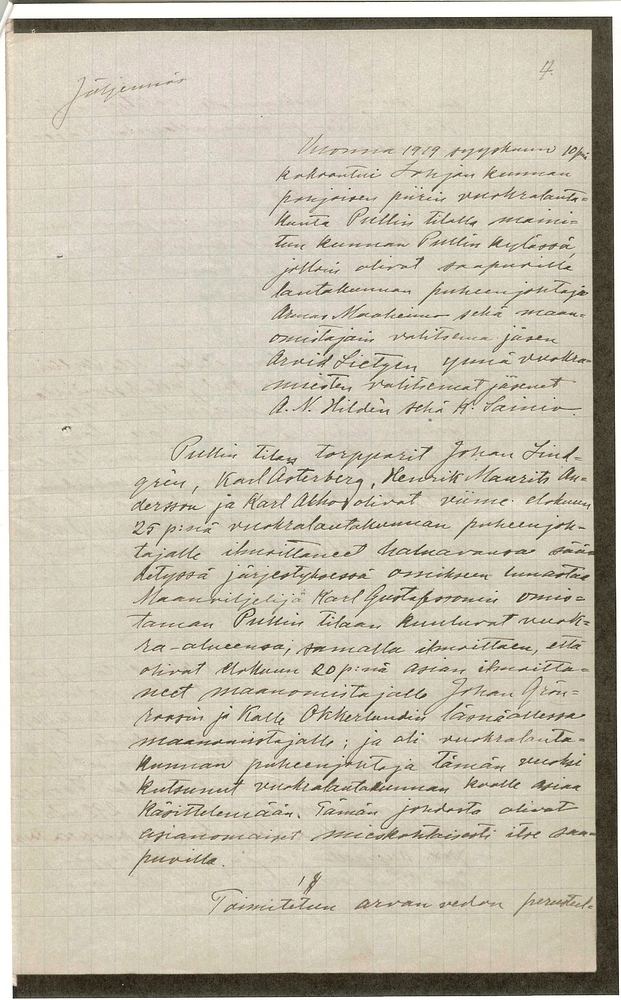 Jäljennös
4.
Vuonna 1919 syyskuun 10 p:nä
kokoontui Lohjan kunnan
pohjoisen piirin vuokralauta=
kunta Pullin tilalla maini=
tun kunnan Pullin kylässä,
jolloin olivat saapuvilla
lautakunnan puheenjohtaja
Armas Maaheimo sekä maan=
omistajain valitsema jäsen
Arvid Lietzen ynnä vuokra=
miesten valitsemat jäsenet
A. N. Hildèn sekä K. Sainio.
Pullin tilan torpparit Johan Lind=
grèn, Karl Asterberg, Henrik Maurits An=
dersson ja Karl Alho olivat viime elokuun
25 p:nä vuokralautakunnan puheenjoh=
tajalle ilmoittaneet haluavansa sää=
detyssä järjestyksessä omikseen lunastaa
Maanviljelijä Karl Gustafssonin omis=
taman Pullin tilaan kuuluvat vuok=
ra-alueensa, samalla ilmoittaen, että
olivat elokuun 20 p:nä asian ilmoitta=
neet maanomistajalle Johan Grön=
roosin ja Kalle Okkerlundin läsnäollessa
maanomistajalle; ja oli vuokralauta=
kunnan puheenjohtaja tämän vuoksi
kutsunut vuokralautakunnan koolle asiaa
käsittelemään. Tämän johdosta olivat
asianomaiset mieskohtaisesti itse saa=
puvilla.
1 §
Toimitetun arvan vedon perusteel=